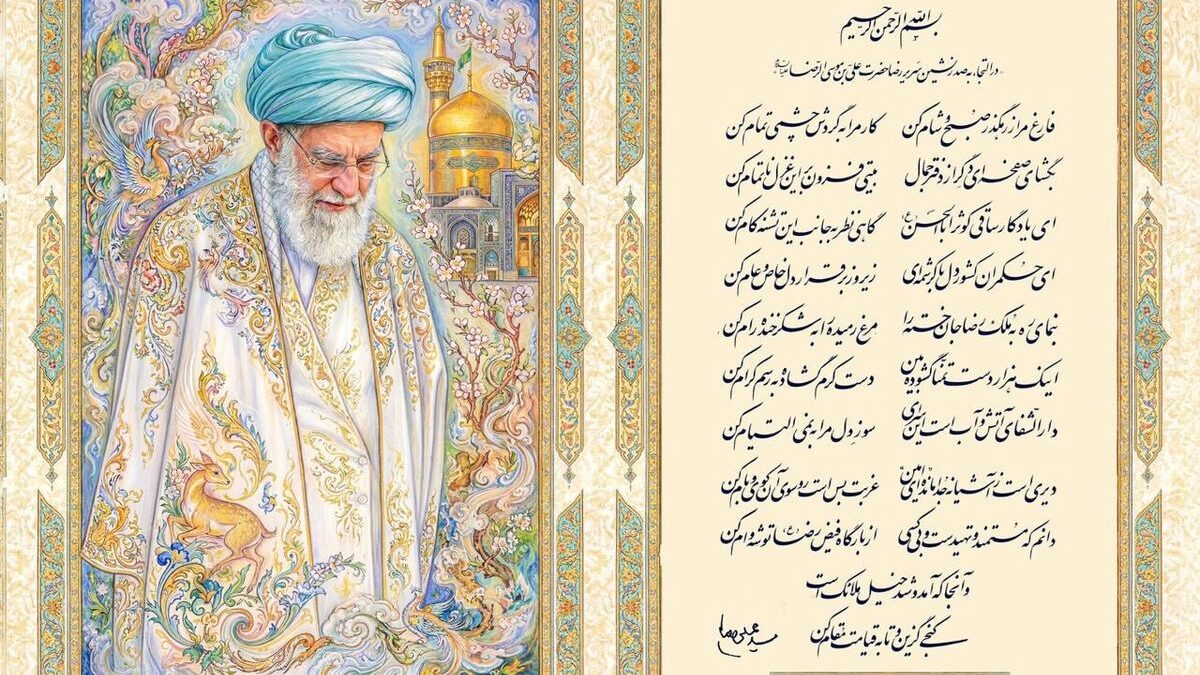 بسم الله الرحمن الرحیم
در التجاء به صدرنشین سریر رضا حضرت علی بن موسی الرضا علیه‌السلام
فارغ مرا ز رهگذر صبح و شام کن کار مرا به گردش چشمی تمام کن
بگشای صفحه‌ای دگر از دفتر جمال بیتی فزون بر این غزل ناتمام کن
ای یادگار ساقی کوثر اباالحسن (ع) گاهی نظر به جانب این تشنه کام کن
ای حکمران کشور دل با کرشمه‌ای زیر و زبر قرار دل خاص و عام کن
بنمای ره به ملک رضا جان خسته را مرغ رمیده را به شکرخنده رام کن
اینک هزار دست تمنا گشوده بین دست کرم گشاده به رسم کرام کن
دارالشفای آتش و آب است این سرای سوز دل مرا به نمی التیام کن
دیری است ز آشیانه جدا مانده‌ای امین غربت بس است روسوی آن کوی و بام کن
دانم که مستمند و تهیدست و بی کسی از بارگاه فیض رضا (ع) توشه وام کن
و آنجا که آمد و شد خیل ملائک است
کنجی گزین و تا به قیامت مقام کن